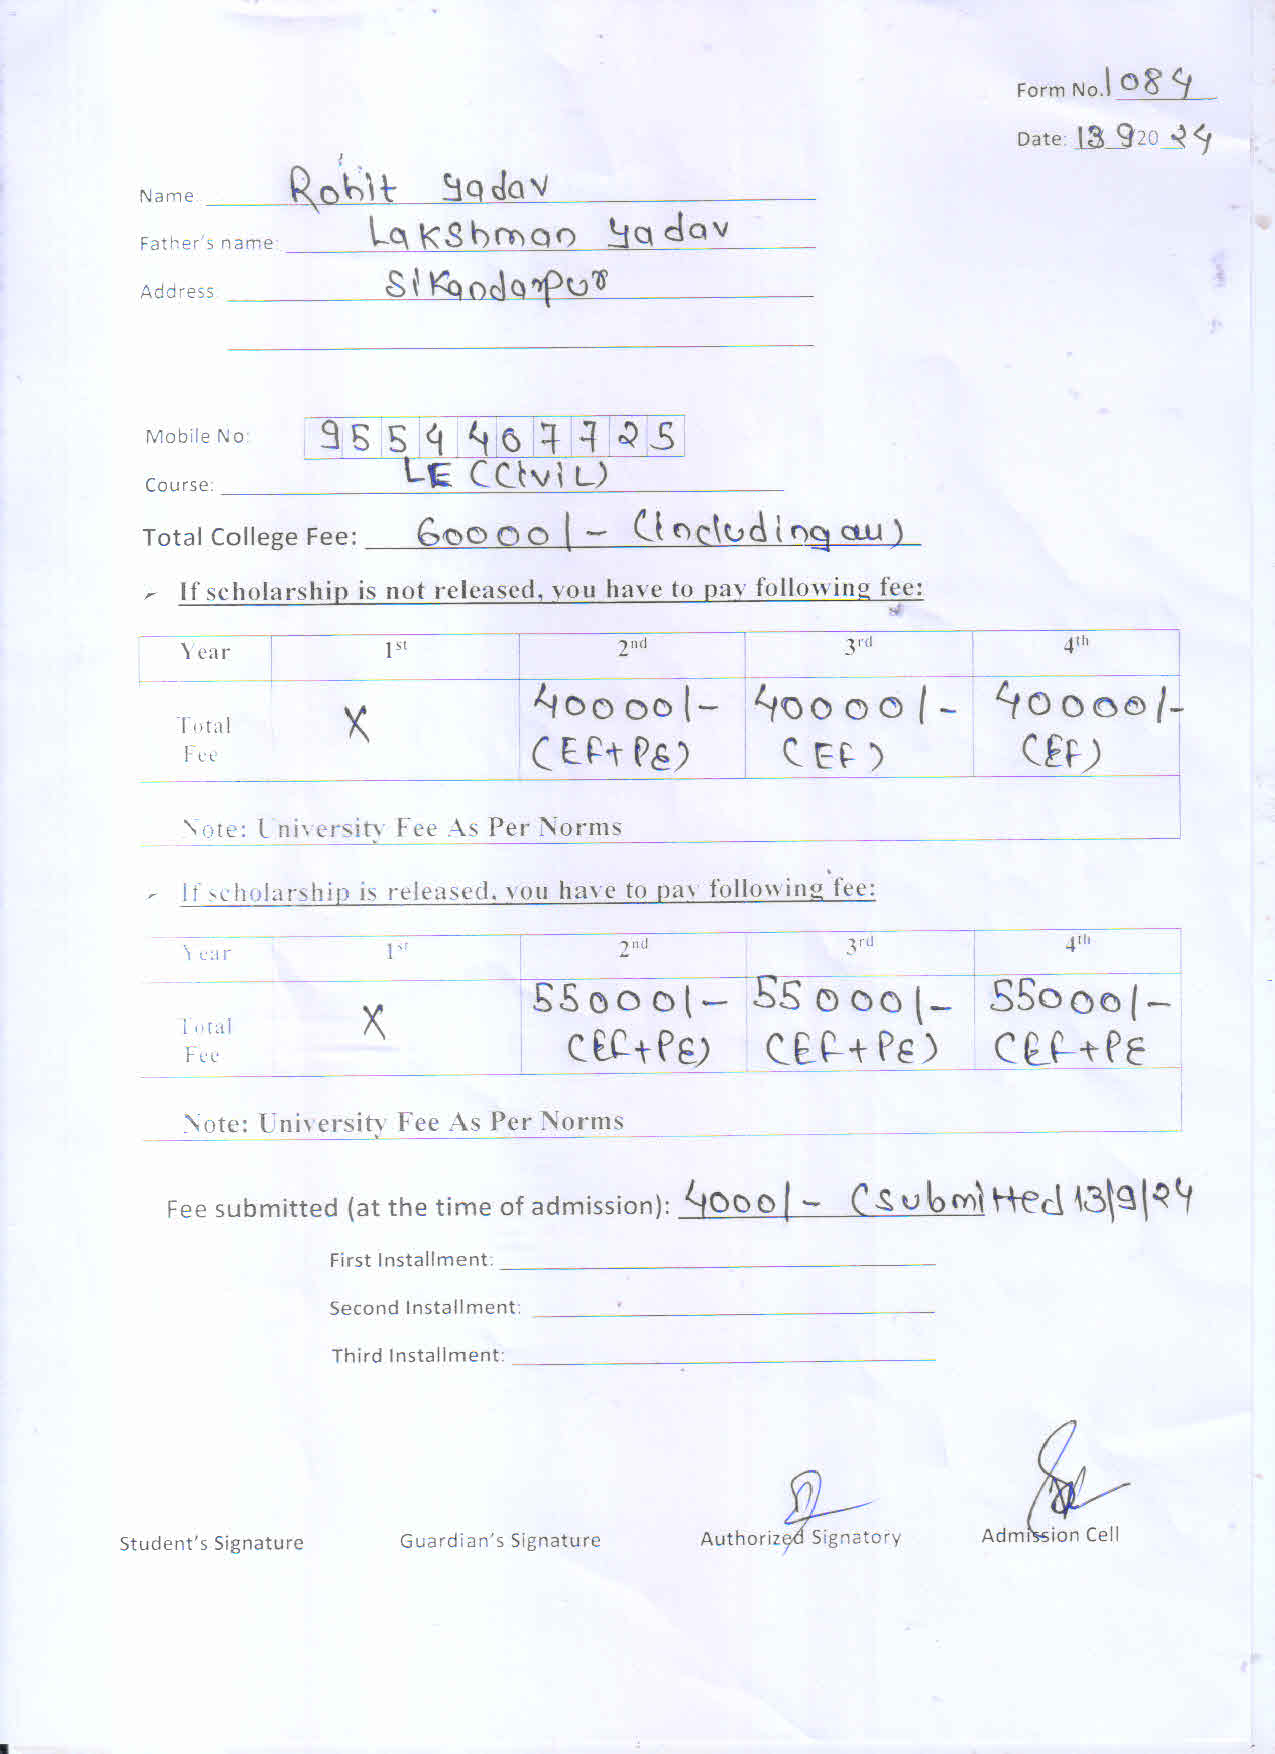 Form No. 1084
Date: 13 9 2024
Name: Rohit Yadav
Father's name: Lakshman Yadav
Address: Sikandarpur
Mobile No: 9554407725
Course: LE (CiviL)
Total College Fee: 60000/- (Including all)
If scholarship is not released, you have to pay following fee:
Year 1st 2nd 3rd 4th
Total Fee X 40000/- 40000/- 40000/-
(EF+PE) (EF) (EF)
Note: University Fee As Per Norms
If scholarship is released, you have to pay following fee:
Year 1st 2nd 3rd 4th
Total Fee X 55000/- 55000/- 55000/-
(EF+PE) (EF+PE) (EF+PE
Note: University Fee As Per Norms
Fee submitted (at the time of admission): 4000/- (submitted 13/9/24
First Installment:
Second Installment:
Third Installment:
Student's Signature Guardian's Signature Authorized Signatory Admission Cell